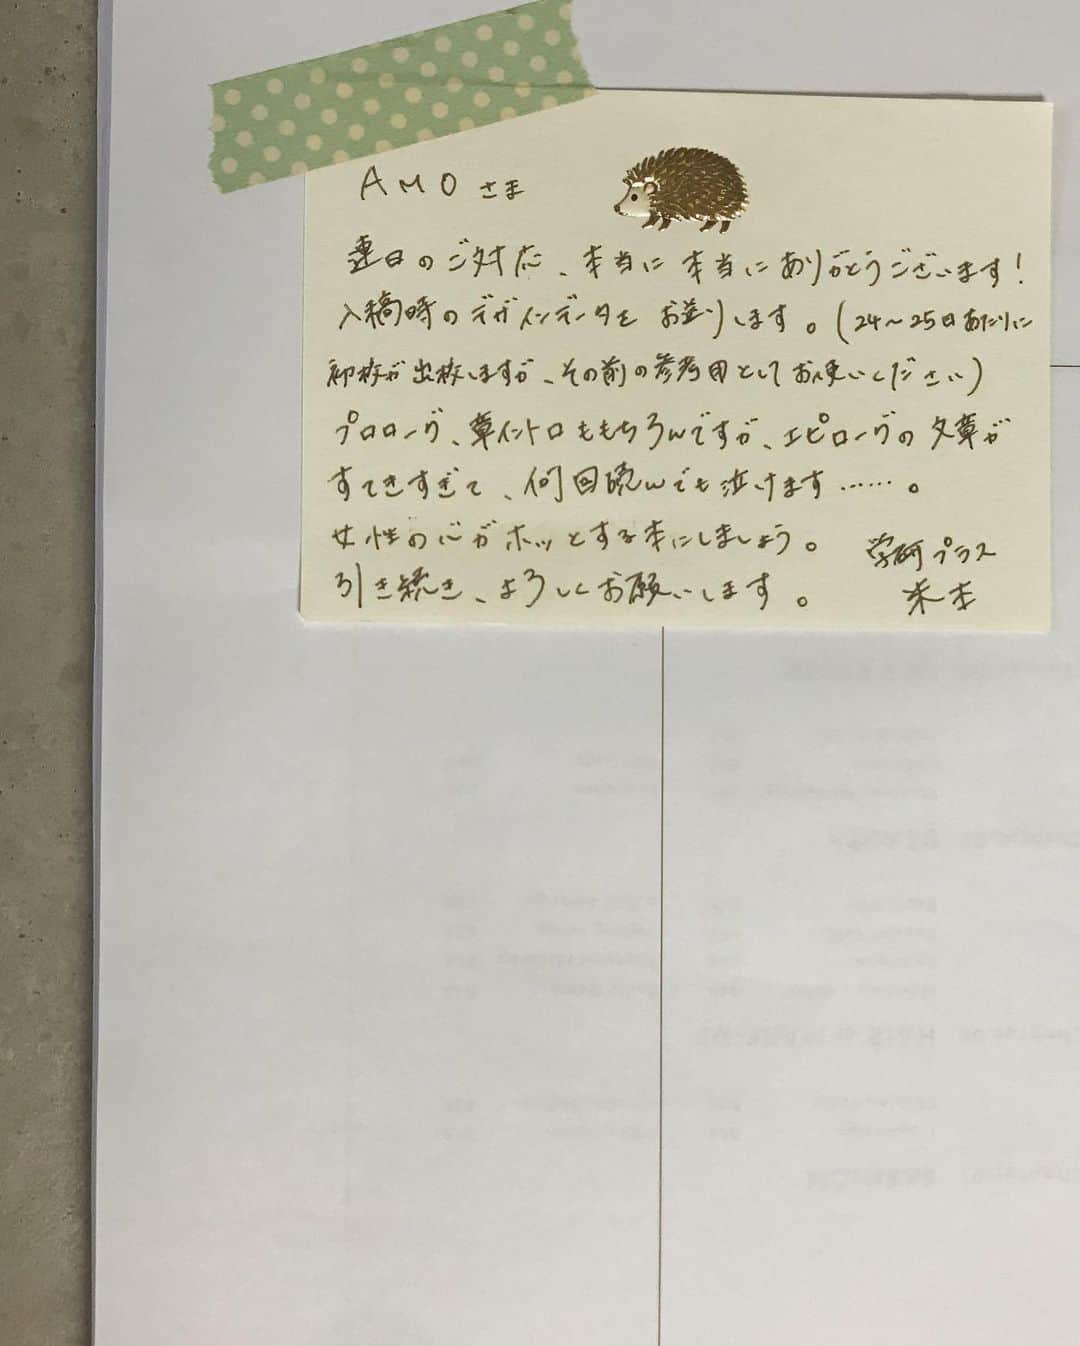 AMOさま
連日のご対応、本当に本当にありがとうございます!
入稿時のデザインデータをお送りします。(24〜25日あたりに
初校が出校しますが、その前の参考用としてお使いください)
プロローグ、章イントロももちろんですが、エピローグの文章が
すてきすぎて、何回読んでも泣けます……。
女性の心がホッとする本にしましょう。
引き続き、よろしくお願いします。
学研プラス